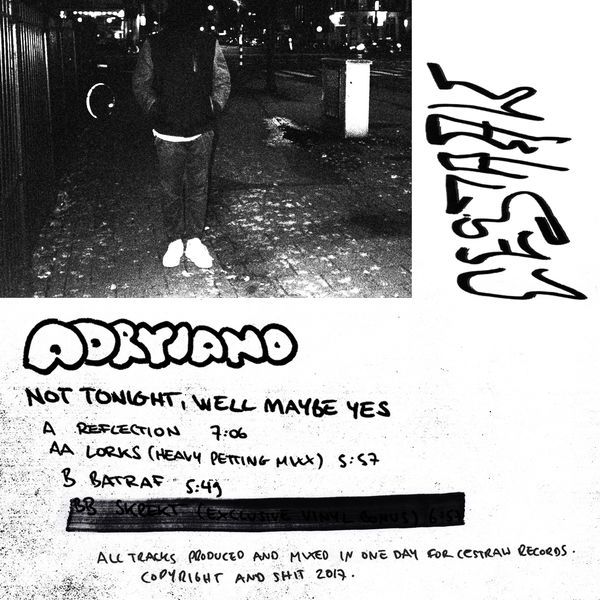 CESTRAW
ADRYIANO
NOT TONIGHT, WELL MAYBE YES
A REFLECTION 7:06
AA LORKS (HEAVY PETTING MIXX) 5:57
B BATRAF 5:49
BB SKREKT (EXCLUSIVE VINYL BONUS)
ALL TRACKS PRODUCED AND MIXED IN ONE DAY FOR CESTRAW RECORDS.
COPYRIGHT AND SHIT 2017.